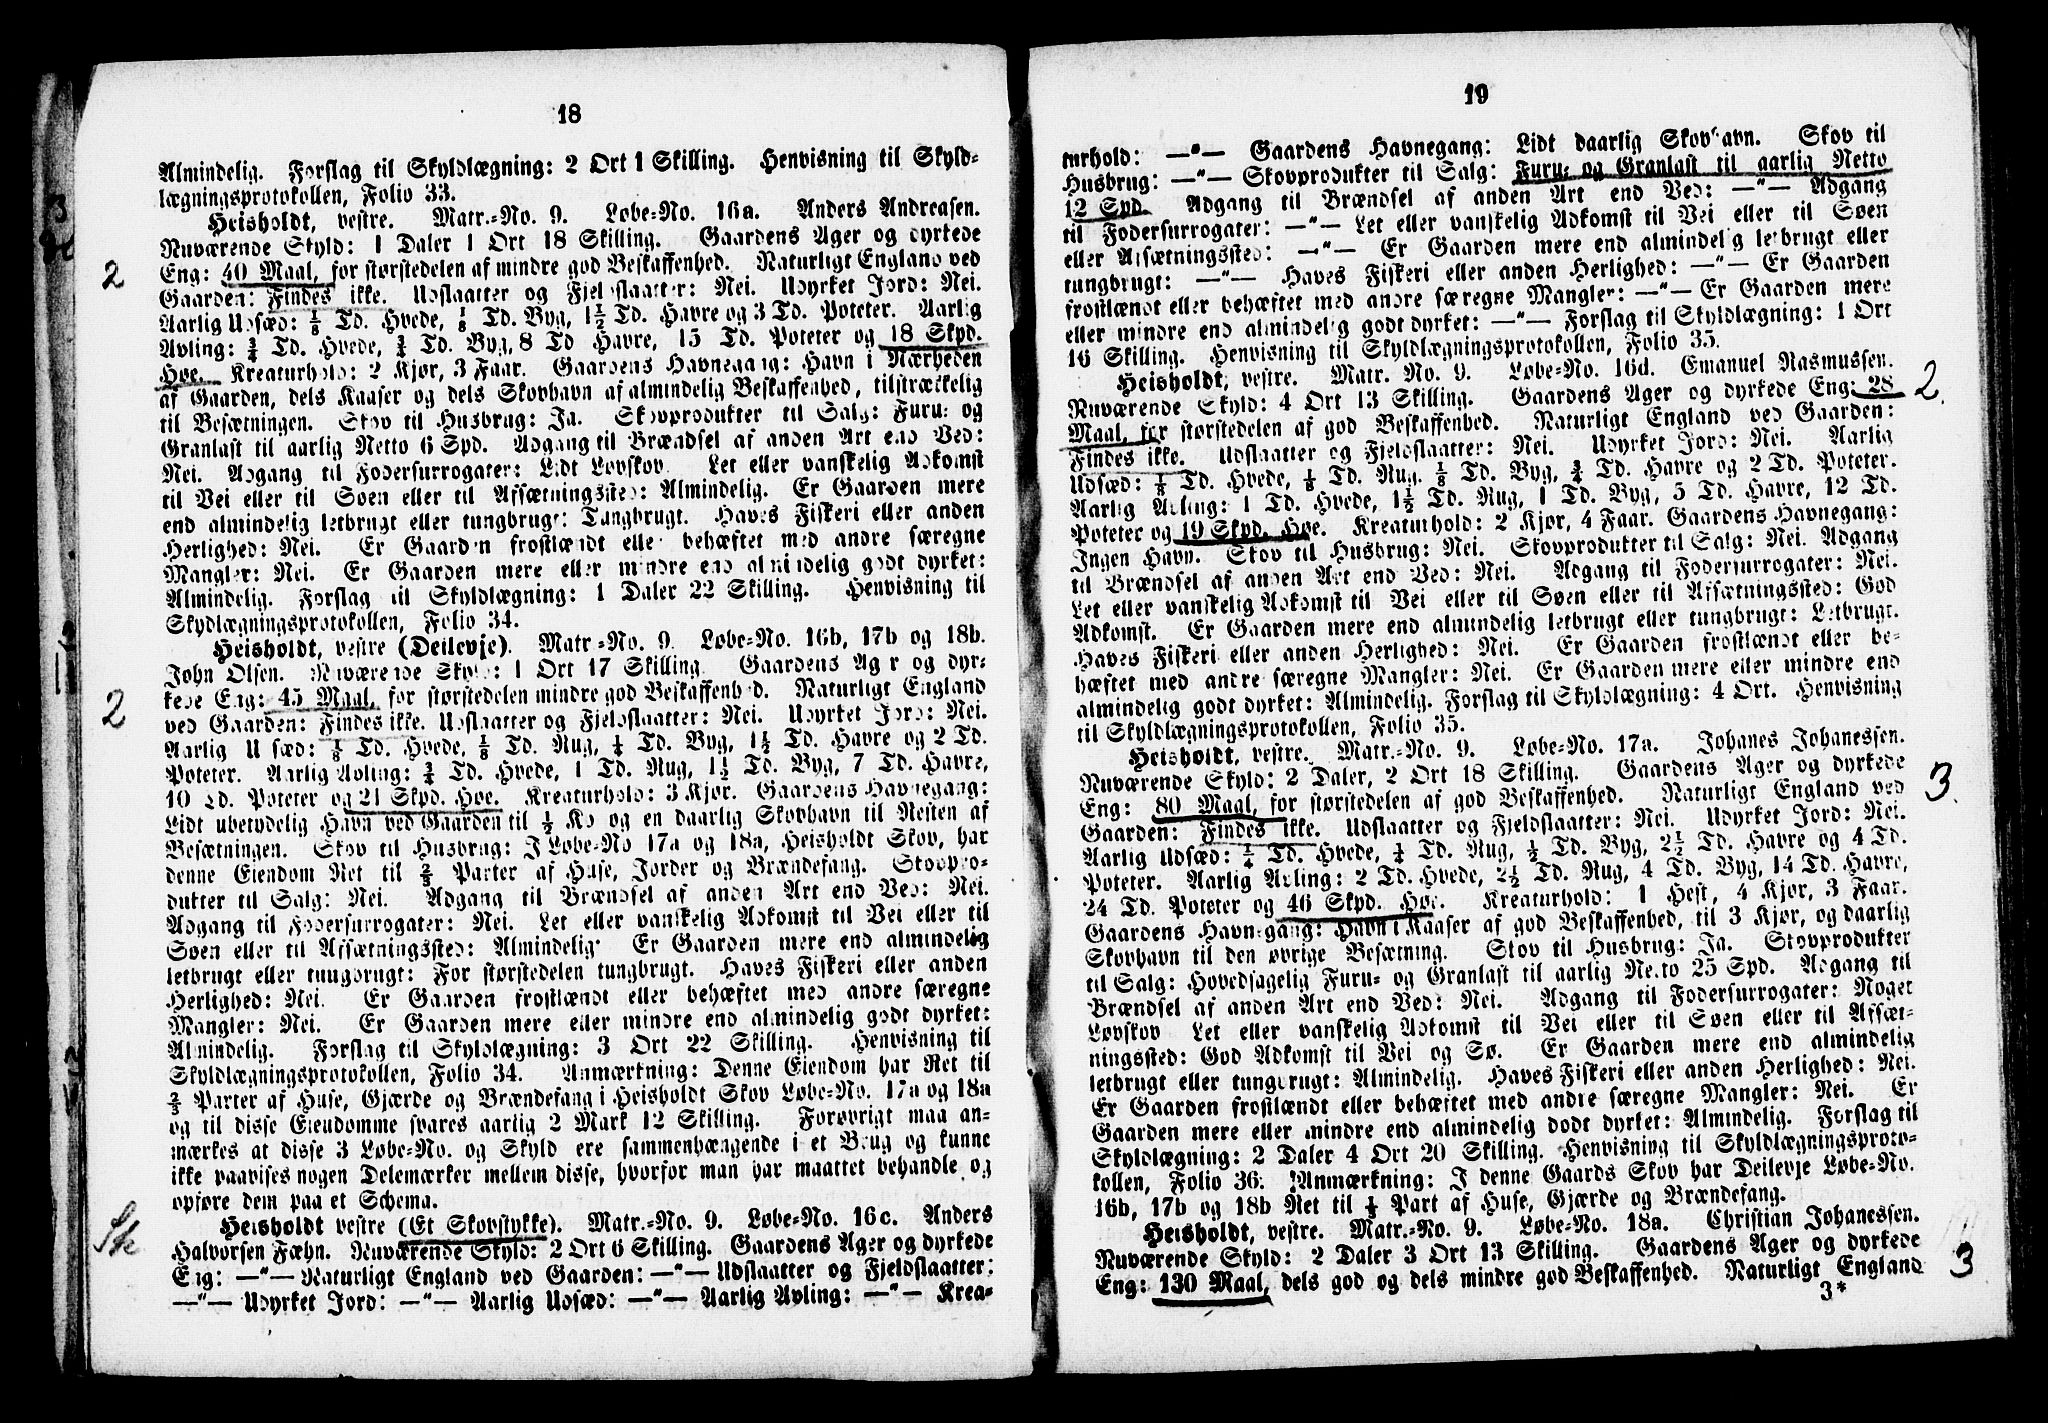 18
Almindelig. Forslag til Skyldlægning: 2 Ort 1 Skilling. Henvisning til Skyld-
lægningsprotokollen, Folio 33.
Heisholdt, vestre. Matr.-No. 9. Løbe-No. 16a. Anders Andreasen.
Nuværende Skyld: 1 Daler 1 Ort 18 Skilling. Gaardens Ager og dyrkede
Eng: 40 Maal, for størstedelen af mindre god Beskaffenhed. Naturligt England ved
2
Gaarden: Findes ikke. Udslaatter og Fjeldslaatter: Nei. Udyrket Jord: Nei.
Aarlig Udsæd: 1/8 Td. Hvede, 1/8 Td. Byg, 1 1/2 Td. Havre og 3 Td. Poteter. Aarlig
Avling: 3/4 Td. Hvede, 3/4 Td. Byg, 8 Td Havre, 15 Td. Poteter og 18 Skpd.
Høe. Kreaturhold: 2 Kjør, 3 Faar. Gaardens Havnegang: Havn i Nærheden
af Gaarden, dels Kaaser og dels Skovhavn af almindelig Beskaffenhed, tilstrækkelig
til Besætningen. Skov til Husbrug: Ja. Skovprodukter til Salg: Furu- og
Granlast til aarlig Netto 6 Spd. Adgang til Brændsel af anden Art end Ved:
Nei. Adgang til Fodersurrogater: Lidt Løvskov. Let eller vanskelig Adkomst
til Vei eller til Søen eller til Afsætningssted: Almindelig. Er Gaarden mere
end almindelig letbrugt eller tungbrugt: Tungbrugt. Haves Fiskeri eller anden
Herlighed: Nei. Er Gaarden frostlændt eller behæftet med andre særegne
Mangler: Nei. Er Gaarden mere eller mindre end almindelig godt dyrket:
Almindelig. Forslag til Skyldlægning: 1 Daler 22 Skilling. Henvisning til
Skyldlægningsprotokollen, Folio 34.
Heisholdt, vestre (Deilevje). Matr.-No. 9. Løbe-No. 16b, 17b og 18b.
John Olsen. Nuværende Skyld: 1 Ort 17 Skilling. Gaardens Ager og dyr-
kede Eng: 45 Maal, for størstedelen mindre god Beskaffenhed. Naturligt England
2
ved Gaarden: Findes ikke. Udslaatter og Fjeldslaatter: Nei. Udyrket Jord: Nei.
Aarlig Udsæd: 1/8 Td. Hvede, 1/8 Td. Rug, 1/4 Td. Byg, 1 1/2 Td. Havre og 2 Td.
Poteter. Aarlig Avling: 3/4 Td. Hvede, 1 Td. Rug, 1 1/2 Td. Byg, 7 Td. Havre,
10 Td. Poteter og 21 Skpd. Høe. Kreaturhold: 3 Kjør. Gaardens Havnegang:
Lidt ubetydelig Havn ved Gaarden til 1/2 Ko og en daarlig Skovhavn til Resten af
Besætningen. Skov til Husbrug: I Løbe-No 17a og 18a, Heisholdt Skov, har
denne Eiendom Ret til 2/3 Parter af Huse, Jorder og Brændefang. Skovpro-
dukter til Salg: Nei. Adgang til Brændsel af anden Art end Ved: Nei.
Adgang til Fodersurrogater: Nei. Let eller vanskelig Adkomst til Vei eller til
Søen eller til Afsætningssted: Almindelig. Er Gaarden mere end almindelig
letbrugt eller tungbrugt: For størstedelen tungbrugt. Haves Fiskeri eller anden
Herlighed: Nei. Er Gaarden frostlændt eller behæftet med andre særegne
Mangler: Nei. Er Gaarden mere eller mindre end almindelig godt dyrket:
Almindelig. Forslag til Skyldlægning: 3 Ort 22 Skilling. Henvisning til
Skyldlægningsprotokollen, Folio 34. Anmærkning: Denne Eiendom har Ret til
2/3 Parter af Huse, Gjærde og Brændefang i Heisholdt Skov Løbe-No. 17a og 18a
og til disse Eiendomme svares aarlig 2 Mark 12 Skilling. Forøvrigt maa an-
mærkes at disse 3 Løbe-No. og Skyld ere sammenhængende i et Brug og kunne
ikke paavises nogen Delemærker mellem disse, hvorfor man har maattet behandle og
opføre dem paa et Schema.
Heisholdt vestre (Et Skovstykke). Matr.-No. 9. Løbe-No. 16c. Anders
Sk
Halvorsen Fæhn. Nuværende Skyld: 2 Ort 6 Skilling. Gaardens Ager og dyrkede
Eng: —"— Naturligt England ved Gaarden: —"— Udslaatter og Fjeldslaatter:
—"— Udyrket Jord: —"— Aarlig Udsæd: —"— Aarlig Avling: —"— Krea-
19
turhold: —"— Gaardens Havnegang: Lidt daarlig Skovhavn. Skov til
Husbrug: —"— Skovprodukter til Salg: Furu- og Granlast til aarlig Netto
12 Spd. Adgang til Brændsel af anden Art end Ved: —"— Adgang
til Fodersurrogater: —"— Let eller vanskelig Adkomst til Vei eller til Søen
eller Afsætningssted: —"— Er Gaarden mere end almindelig letbrugt eller
tungbrugt: —"— Haves Fiskeri eller anden Herlighed: —"— Er Gaarden
frostlændt eller behæftet med andre særegne Mangler: —"— Er Gaarden mere
eller mindre end almindelig godt dyrket: —"— Forslag til Skyldlægning: 1 Ort
16 Skilling. Henvisning til Skyldlægningsprotokollen, Folio 35.
Heisholdt, vestre. Matr. No. 9. Løbe-No. 16d. Emanuel Rasmussen.
Nuværende Skyld: 4 Ort 13 Skilling. Gaardens Ager og dyrkede Eng: 28
2.
Maal, for størstedelen af god Beskaffenhed. Naturligt England ved Gaarden:
Findes ikke. Udslaatter og Fjeldslaatter: Nei. Udyrket Jord: Nei. Aarlig
Udsæd: 1/8 Td. Hvede, 1/8 Td. Rug. 1/8 Td. Byg, 3/4 Td. Havre og 2 Td. Poteter.
Aarlig Avling: 1 Td. Hvede, 1 1/2 Td. Rug, 1 Td. Byg, 5 Td. Havre, 12 Td.
Poteter og 19 Skpd. Høe. Kreaturhold: 2 Kjør, 4 Faar. Gaardens Havnegang:
Ingen Havn. Skov til Husbrug: Nei. Skovprodukter til Salg: Nei. Adgang
til Brændsel af anden Art end Ved: Nei. Adgang til Fodersurrogater: Nei.
Let eller vanskelig Adkomst til Vei eller til Søen eller til Afsætningssted: God
Adkomst. Er Gaarden mere end almindelig letbrugt eller tungbrugt: Letbrugt.
Haves Fiskeri eller anden Herlighed: Nei. Er Gaarden frostlændt eller be-
hæftet med andre særegne Mangler: Nei. Er Gaarden mere eller mindre end
almindelig godt dyrket: Almindelig. Forslag til Skyldlægning: 4 Ort. Henvisning
til Skyldlægningsprotokollen, Folio 35.
Heisholdt, vestre. Matr.-No. 9. Løbe-No. 17a. Johanes Johanessen.
Nuværende Skyld: 2 Daler, 2 Ort 18 Skilling. Gaardens Ager og dyrkede
3.
Eng: 80 Maal, for størstedelen af god Beskaffenhed. Naturligt England ved
Gaarden: Findes ikke. Udslaatter og Fjeldslaatter: Nei. Udyrket Jord: Nei.
Aarlig Udsæd: 1/4 Td. Hvede, 1/4 Td. Rug, 1/2 Td. Byg, 2 1/2 Td. Havre og 4 Td.
Poteter. Aarlig Avling: 2 Td. Hvede, 2 1/2 Td. Rug, 4 Td. Byg, 14 Td. Havre,
24 Td. Poteter og 46 Skpd. Høe. Kreaturhold: 1 Hest, 4 Kjør, 3 Faar.
Gaardens Havnegang: Havn i Kaaser af god Beskaffenhed, til 3 Kjør, og daarlig
Skovhavn til den øvrige Besætning. Skov til Husbrug: Ja. Skovprodukter
til Salg: Hovedsagelig Furu- og Granlast til aarlig Netto 25 Spd. Adgang til
Brændsel af anden Art end Ved: Nei. Adgang til Fodersurrogater: Noget
Løvskov Let eller vanskelig Adkomst til Vei eller til Søen eller til Afsæt-
ningssted: God Adkomst til Vei og Sø. Er Gaarden mere end almindelig
letbrugt eller tungbrugt: Almindelig. Haves Fiskeri eller anden Herlighed: Nei.
Er Gaarden frostlændt eller behæftet med andre særegne Mangler: Nei. Er
Gaarden mere eller mindre end almindelig dodt dyrket: Almindelig. Forslag til
Skyldlægning: 2 Daler 4 Ort 20 Skilling. Henvisning til Skyldlægningsproto-
kollen, Folio 36. Anmærkning: I denne Gaards Skov har Deilevje Løbe-No.
16b, 17b og 18b Ret til 1/3 Part af Huse, Gjærde og Brændefang.
Heisholdt, vestre. Matr.-No. 9. Løbe-No. 18a. Christian Johanessen.
Nuværende Skyld: 2 Daler 3 Ort 13 Skilling. Gaardens Ager og dyrkede
3
Eng: 130 Maal, dels god og dels mindre god Beskaffenhed. Naturligt England
3*